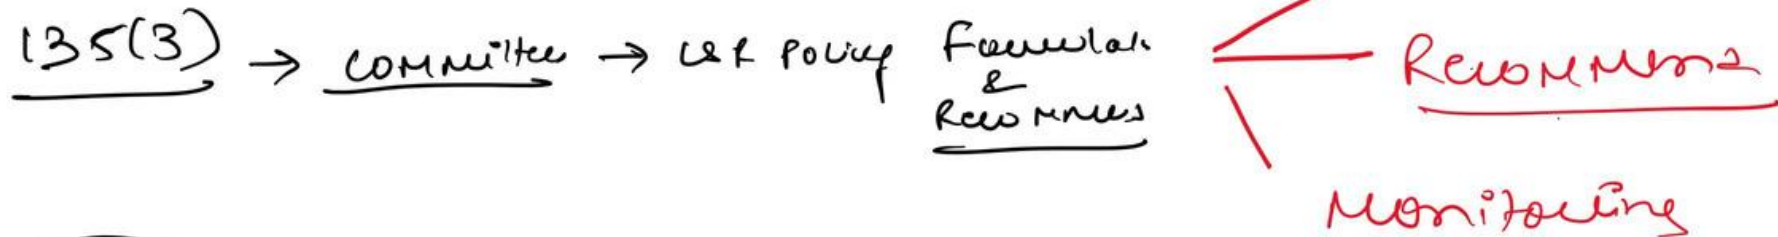 135(3) → committee → CSR Policy Formulate
&
Recommends
Recommend
Monitoring